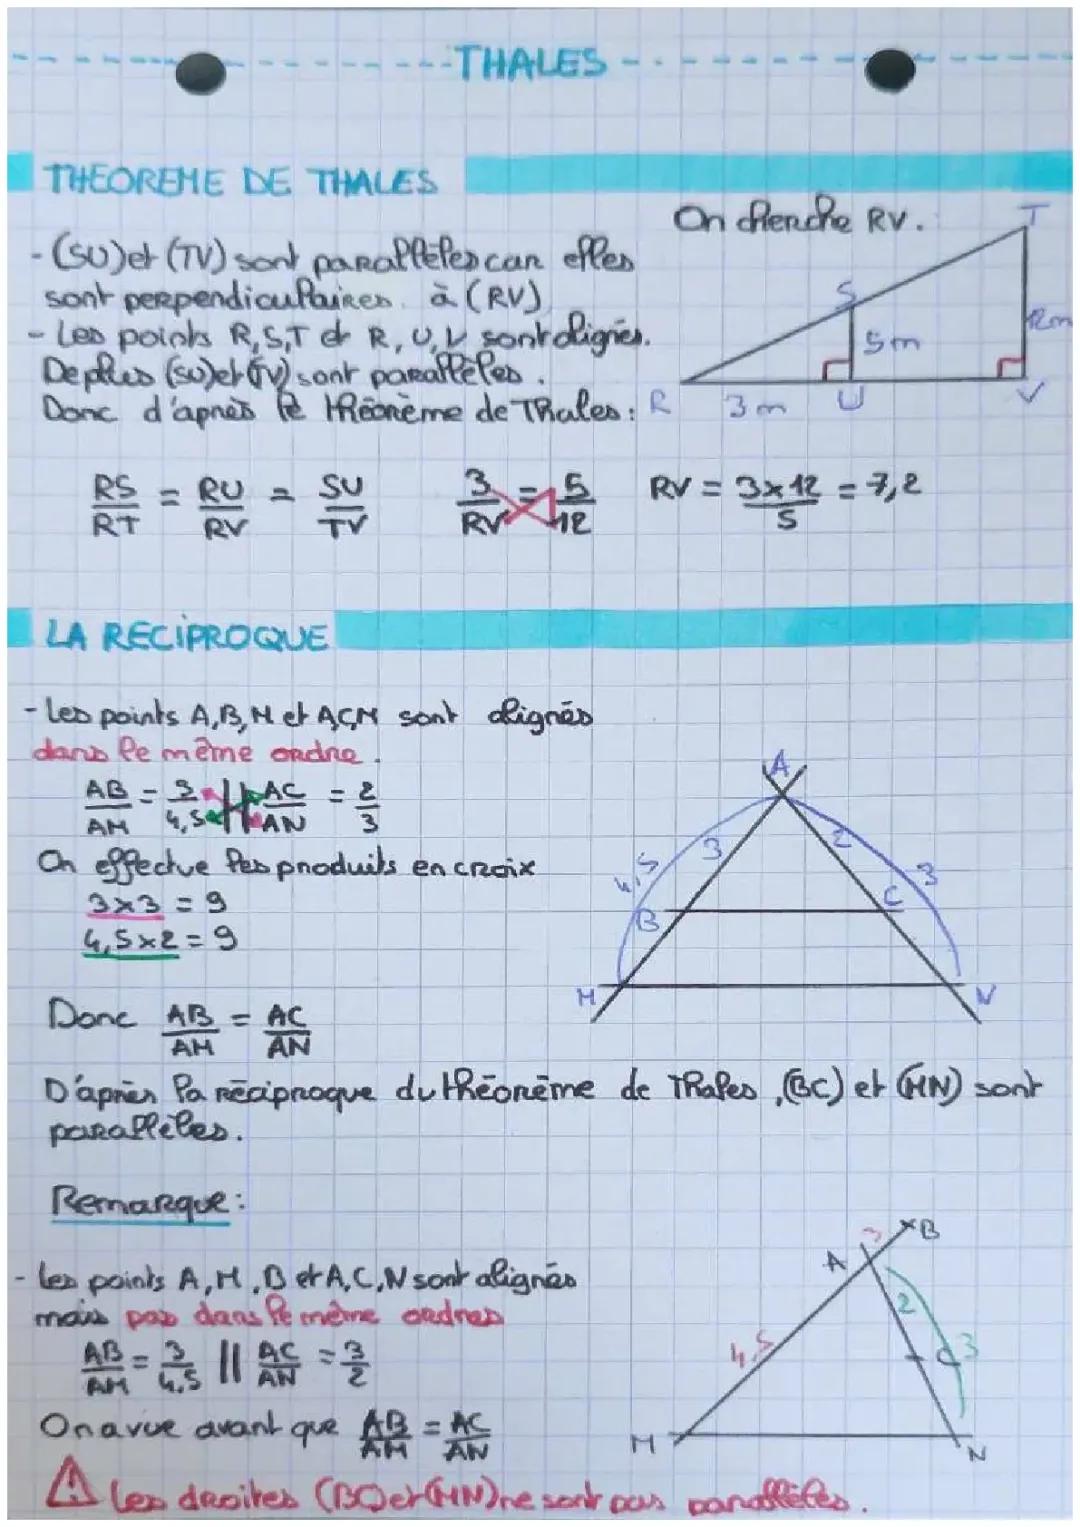 THALES
THEOREME DE THALES
On cherche RV.
- (SU) et (TV) sont parallèles car elles
sont perpendiculaires à (RV)
- Les points R,S,T et R,U,V sont alignés.
De plus (SU) et (TV) sont parallèles.
Donc d'après le théorème de Thales :
T
S
12m
5m
R 3m U V
RS/RT = RU/RV = SU/TV 3/RV = 5/12 RV = 3x12/5 = 7,2
LA RECIPROQUE
- Les points A,B,M et A,C,M sont alignés
dans le même ordre.
AB/AM = 3/4,5 || AC/AN = 2/3
On effectue les produits en croix
3x3 = 9
4,5x2 = 9
A
3 2
4,5 3
B C
M N
Donc AB/AM = AC/AN
D'après la réciproque du théorème de Thales, (BC) et (MN) sont
parallèles.
Remarque :
- Les points A,M,B et A,C,N sont alignés
mais pas dans le même ordres
AB/AM = 3/4,5 || AC/AN = 3/2
On a vue avant que AB/AM = AC/AN
⚠ Les droites (BC) et (MN) ne sont pas parallèles.
3 B
A
2
4,5 C 3
M N